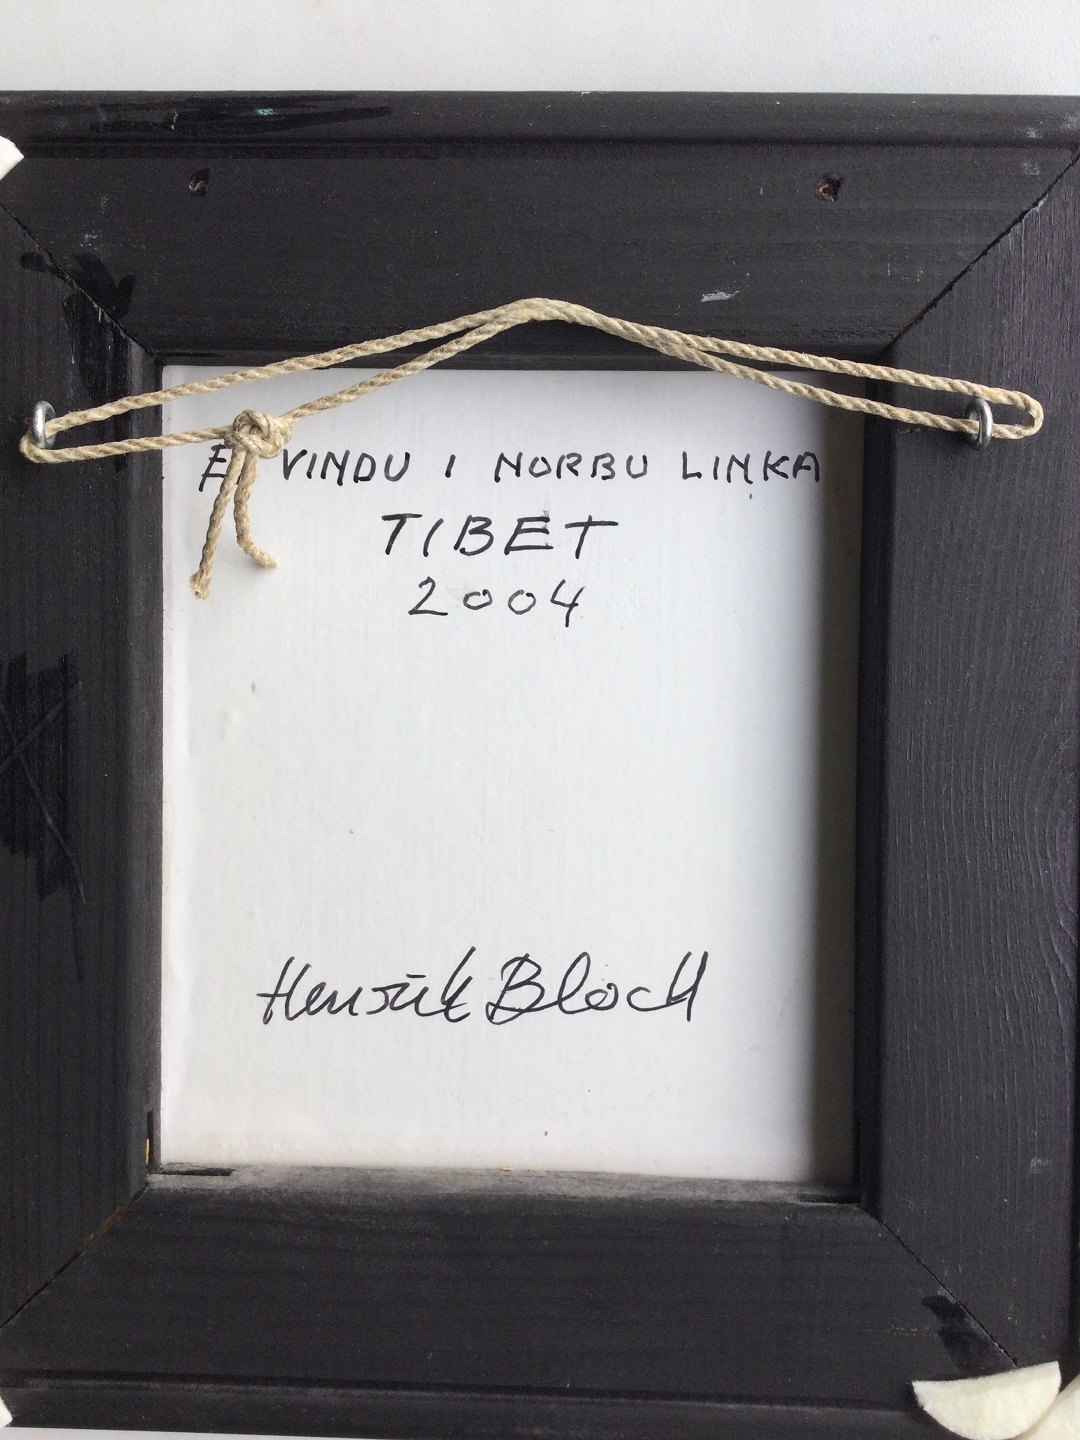 VINDU I NORBU LINKA
TIBET
2004
Henrik Bloch